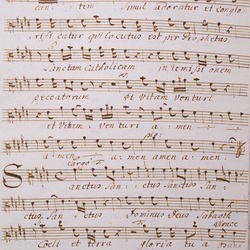 can: tem Simul adoratur et Conglo
rifi catur qui locutus est per Prophetas
Sanctam Catholicam
peccatorum et Vitam venturi
et Vitam venturi a men
a men a men a men.
Largo
Sanctus San ctus San
ctus, San ctus Dominus Deus Sabaoth
Coeli et terra gloria tu a